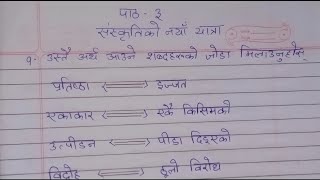 पाठ - ३
संस्कृतिको नयाँ यात्रा
१- उस्तै अर्थ आउने शब्दहरूको जोडा मिलाउनुहोस्
प्रतिष्ठा ⟺ इज्जत
एकाकार ⟺ एकै किसिमको
उत्पीडन ⟺ पीडा दिइएको
विद्रोह ⟺ ठूलो विरोध